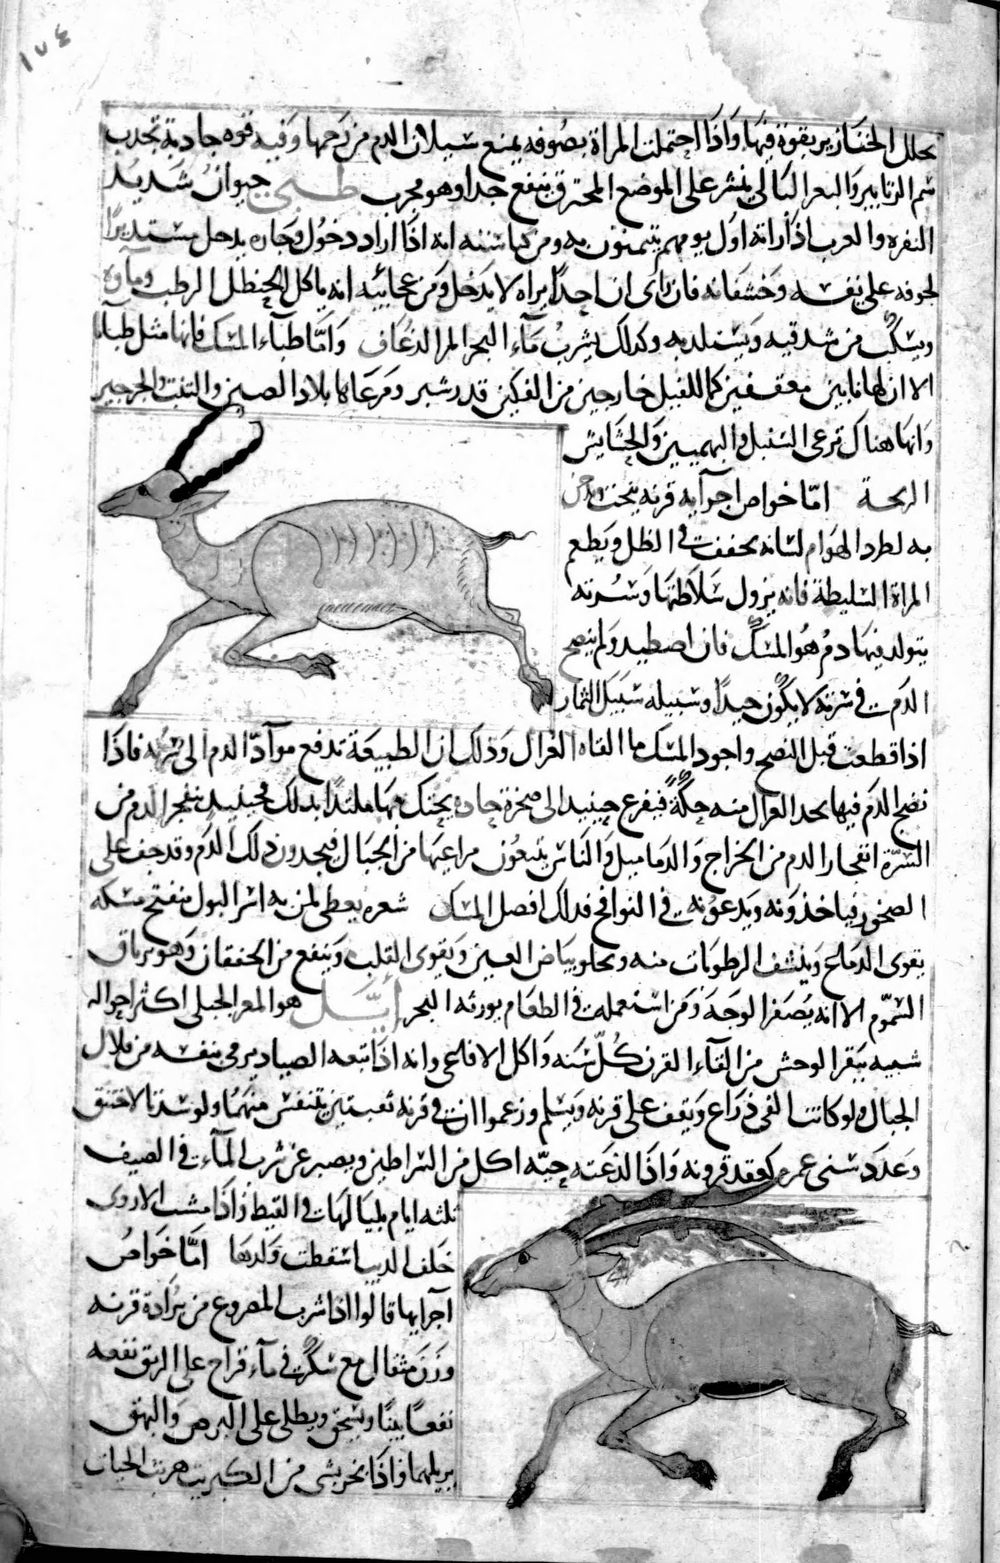 ١٧٤
تحلل الخنازير بقوة فيها واذا احتملت المراة بصوفه يمنع سيلان الدم من رحمها وفيه قوه جاذبة تجذب
سم الزنابير والبعر البالي ينثر على الموضع المحترق ينفع جدا وهو مجرب ظبي حيوان شديد
النفره والعرب اذا راته اول يومهم يتيمنون به ومن كياسته انه اذا اراد دخول وجاره يدخل مستدبرا
لخوفه على نفسه وخشفانه فان راى ان احدا يراه لا يدخل ومن عجائبه انه ياكل الحنظل الرطب وماوه
يسكب من شدقيه ويستلذ به وكذلك يشرب ماء البحر المر الزعاف واما ظباء المسك فانها مثل ظبانا
الا ان لها نابين معقفين كما للفيل خارجين من الفكين قدر شبر ومرعاها بلاد الصين والتبت والجرجير
وانها هناك ترعى السنبل والبهمين والحشايش
الريحة اما خواص اجزايه قرنه ينحت ويدخن
به لطرد الهوام لسانه يجفف في الظل ويطعم
المراة السليطة فانه يزول سلاطتها وسرته
يتولد فيها دم هو المسك فان اصطيد ولم ينضج
الدم في سرته لا يكون جيدا وسبيله سبيل الثمار
اذا قطعت قبل النضج واجود المسك ما القاه الغزال وذلك ان الطبيعة تدفع مواد الدم الى سرته فاذا
نضج الدم فيها يجد الغزال منه حكة فيفزع حينيذ الى صخرة حاده يحتك بها ملتذا بذلك فحينيذ ينفجر الدم من
السرة انفجار الدم من الخراج والدماميل والناس يتبعون مراعيها من الجبال فيجدون ذلك الدم وقد جف على
الصخور فياخذونه ويدعونه في النوافج فذلك افضل المسك شعره يعطى لمن به اسر البول منفتح مسكه
يقوى الدماغ وينشف الرطوبات منه ويجلو بياض العين ويقوى القلب وينفع من الخفقان وهو ترياق
السموم الا انه يصفر الوجه ومن استعمله في الطعام يورثه البخر أيّل هو المعز الجبلى اكثر احواله
شبيه ببقر الوحش من القاء القرن كل سنه واكل الافاعى وانه اذا تبعه الصياد يرمي بنفسه من قلال
الجبال ولو كانت الفي ذراع ويقف على قرنه ويسلم وزعموا ان في قرنه ثقبتين يتنفس منهما ولو سدتا لاختنق
وعدد سنى عمره كعقد قرونه واذا لذعته حيه اكل من السراطين ويصبر عن شرب الماء في الصيف
ثلثه ايام بلياليها في القيظ واذا مشت الاروى
خلف الذيب اسقطت ولدها اما خواص
اجزايها قالوا اذا شرب المصروع من برادة قرنه
وزن مثقال مع سكر في ماء قراح على الريق نفعه
نفعا بينا ويسحق ويطلى على البرص والبهق
يزيلهما واذا بخر بشى من الكبريت هربت الحيات